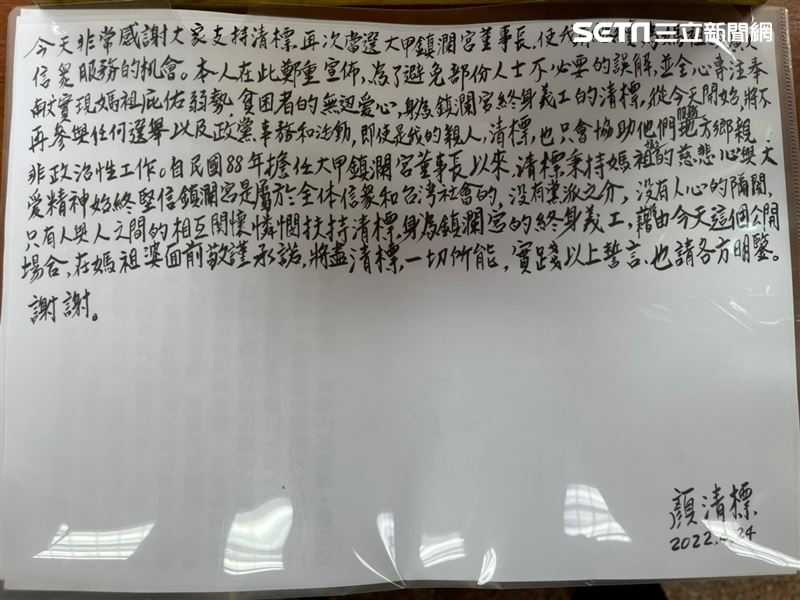 SETN 三立新聞網
今天非常感謝大家支持清標，再次當選大甲鎮瀾宮董事長，使我
信眾服務的机會。本人在此鄭重宣佈，為了避免部份人士不必要的誤解，並全心專注奉
献實現媽祖庇佑弱勢，貧困者的無边愛心，身為鎮瀾宮終身義工的清標，從今天開始，將不
再參與任何選舉以及政黨事務和活動，即使是我的親人，清標，也只會協助他們地方鄉親
非政治性工作。自民國88年擔任大甲鎮瀾宮董事長以來，清標秉持媽祖婆的慈悲心與大
愛精神始終堅信鎮瀾宮是屬於全体信眾和台灣社會的，没有黨派之分，没有人心的隔閡，
只有人與人之間的相互関懷憐憫扶持清標，身為鎮瀾宮的終身義工，藉由今天這個公開
場合，在媽祖婆面前敬謹承諾，將盡清標，一切所能，實踐以上誓言，也請各方明鑒。
謝謝。
顏清標
2022. 24